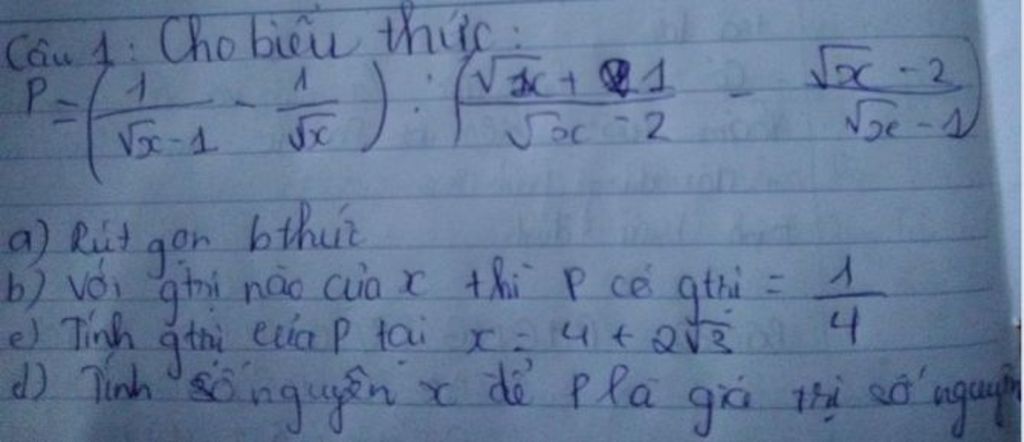 Câu 1: Cho biểu thức:
P = (1/(√x - 1) - 1/√x) : ((√x + 1)/(√x - 2) - (√x - 2)/(√x - 1))
a) Rút gọn bthức
b) Với gtrị nào của x thì P có gthị = 1/4
c) Tính gtrị của P tại x = 4 + 2√3
d) Tính số nguyên x để P là giá trị số nguyên